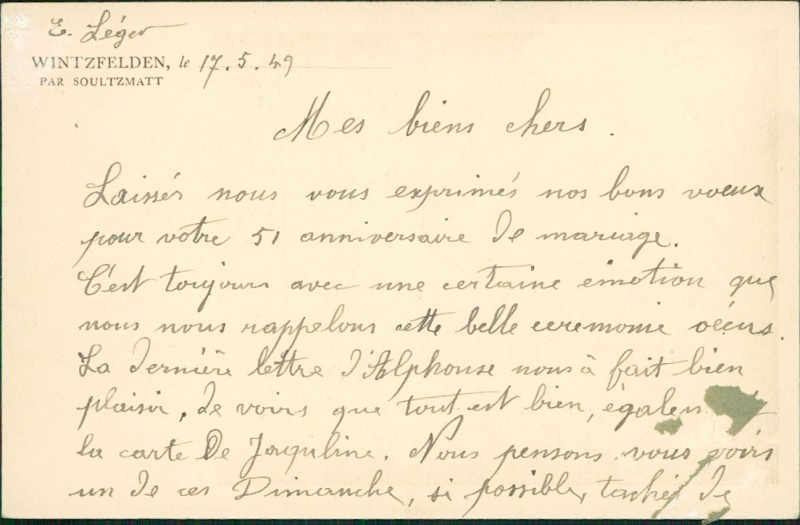 E. Léger
WINTZFELDEN, le 17.5.49
PAR SOULTZMATT
Mes biens chers.
Laissés nous vous exprimés nos bons voeux
pour votre 51 anniversaire de mariage.
C'est toujours avec une certaine émotion que
nous nous rappelons cette belle ceremonie
La dernière lettre d'Alphonse nous à fait bien
plaisir, de voirs que tout est bien,
la carte De Jaquline. Nous pensons vous voirs
un de ces Dimanche, si possible, tachés de